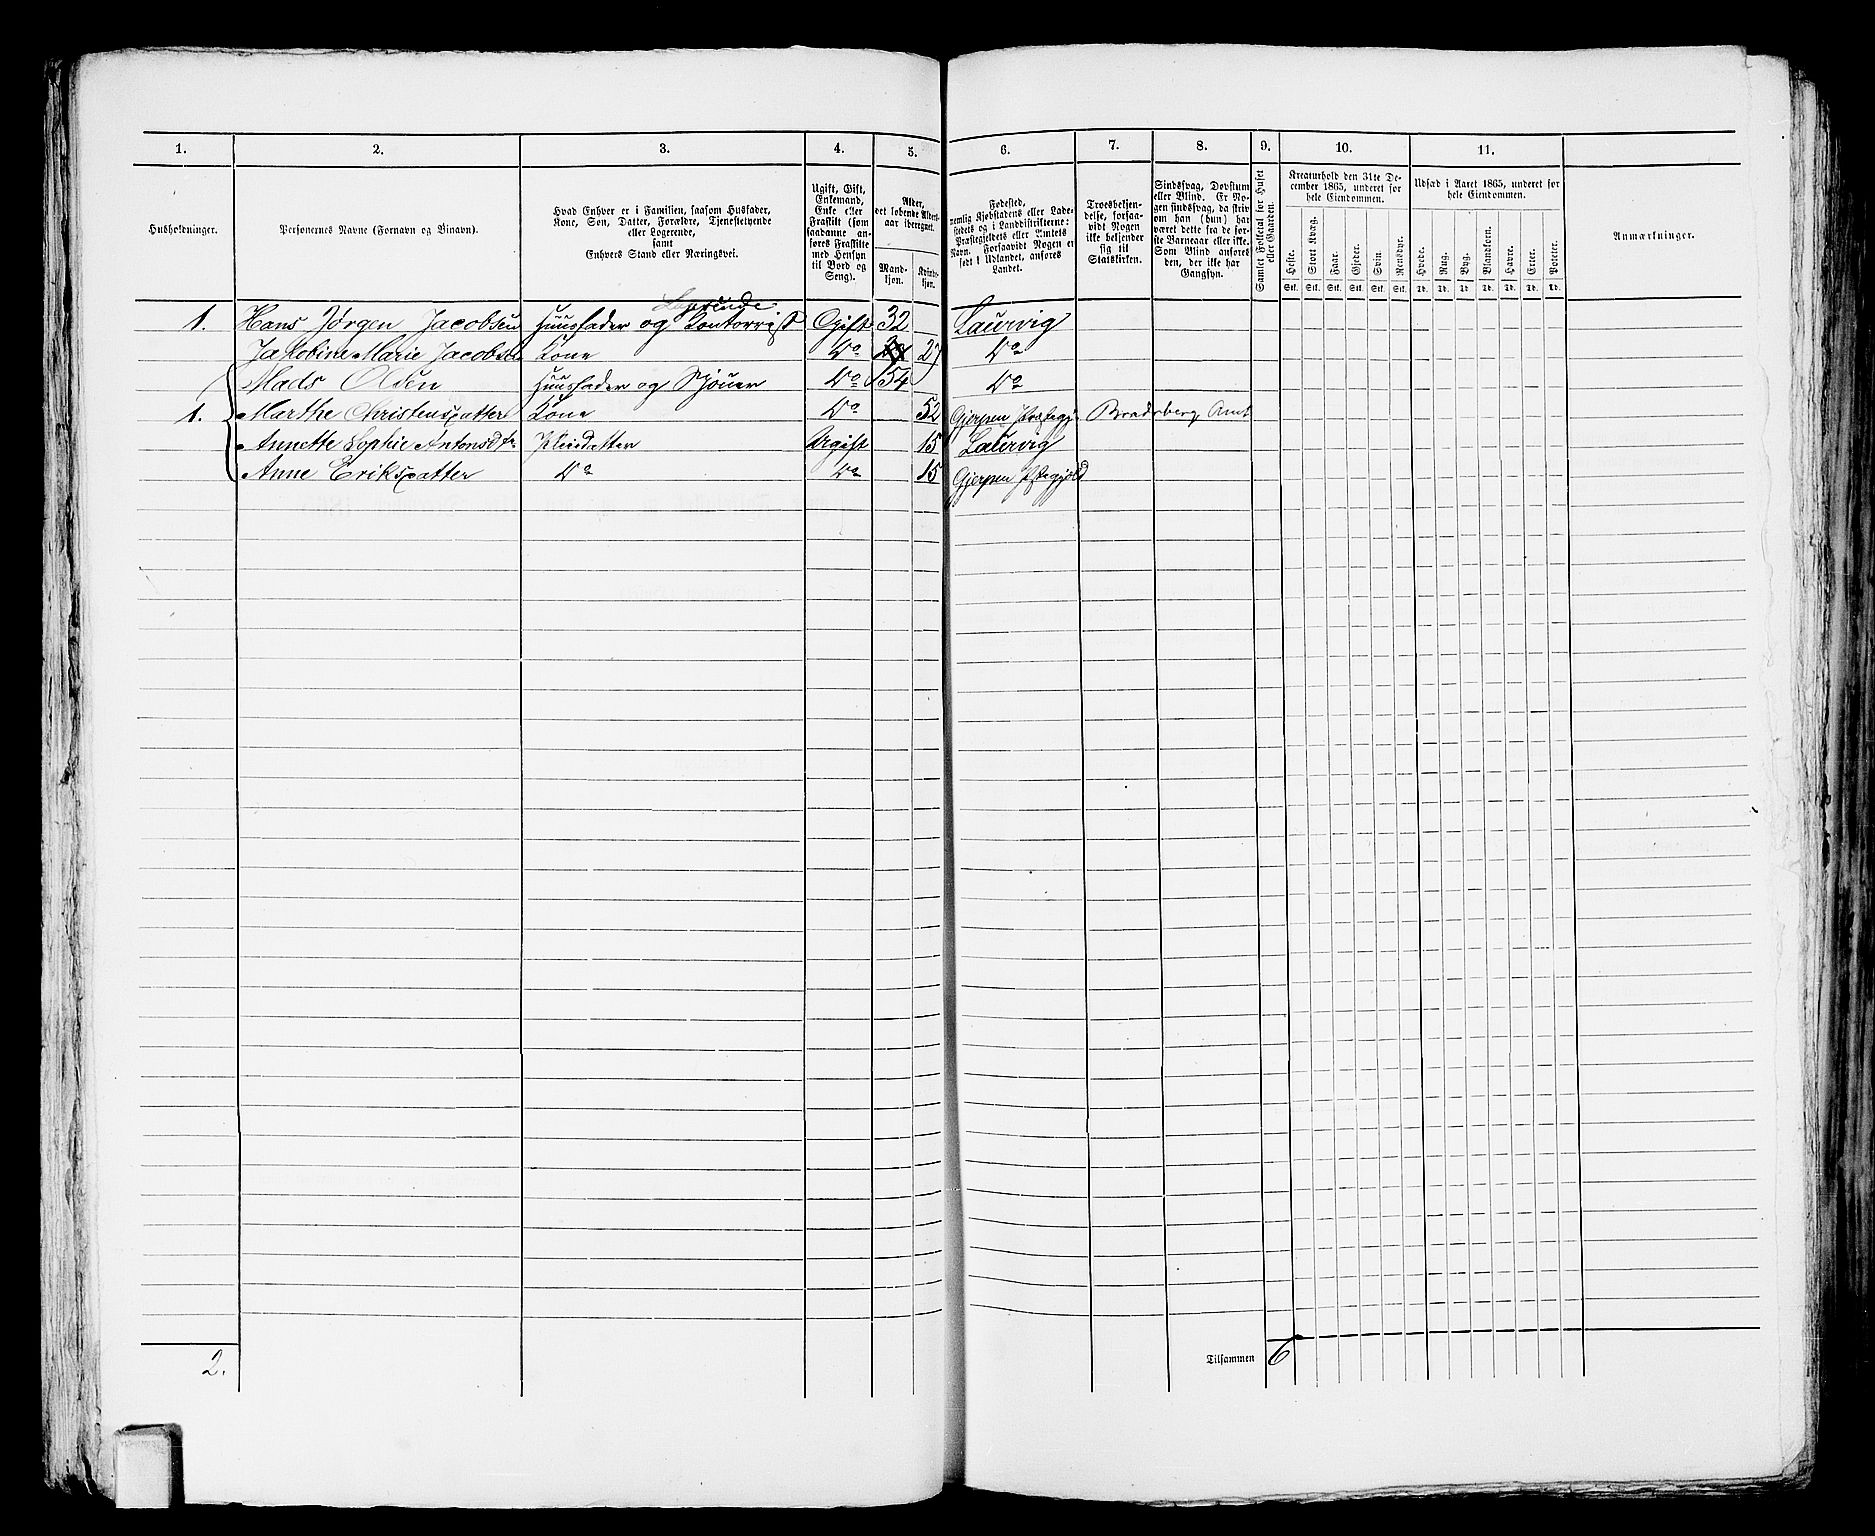 1. 2. 3. 4. 5. 6. 7. 8. 9. 10. 11.
Husholdninger.
Personernes Navne (Fornavn og Binavn).
Hvad Enhver er i Familien, saasom Husfader,
Kone, Søn, Datter, Forældre, Tjenestetyende
eller Logerende,
samt
Enhvers Stand eller Næringsvei.
Ugift, Gift,
Enkemand,
Enke eller
Fraskilt (som
saadanne an-
føres Fraskilte
med Hensyn
til Bord og
Seng).
Alder,
det løbende Alders-
aar iberegnet.
Mand-
kjøn.
Kvinde-
kjøn.
Fødested,
nemlig Kjøbstadens eller Lade-
stedets og i Landdistrikterne:
Præstegjeldets eller Amtets
Navn. Forsaavidt Nogen er
født i Udlandet, anføres
Landet.
Troesbekjen-
delse, forsaa-
vidt Nogen
ikke bekjender
sig til
Statskirken.
Sindssvag, Døvstum
eller Blind. Er No-
gen sindssvag, da skriv
om han (hun) har
været dette fra de før-
ste Barneaar eller ikke.
Som Blind anføres
den, der ikke har
Gangsyn.
Samlet Folketal for Huset
eller Gaarden.
Kreaturhold den 31te De-
cember 1865, underet for
hele Eiendommen.
Heste. Stort Kvæg. Faar. Gjeder. Svin. Rensdyr.
Stk. Stk. Stk. Stk. Stk. Stk.
Udsæd i Aaret 1865, underet for
hele Eiendommen.
Hvede. Rug. Byg. Blandkorn. Havre. Erter. Poteter.
Td. Td. Td. Td. Td. Td. Td.
Anmærkninger.
Logerende
1. Hans Jørgen Jacobsen Huusfader og Kontorrist Gift 32 Laurvig
Jakobine Marie Jacobsen Kone Do 27 Do
Mads Olsen Huusfader og Sjöuer Do 54 Do
1. Marthe Christensdatter Kone Do 52 Gjerpen Præstegj. Bradsberg Amt
Annette Sophie Antonsdtr Pleiedatter Ugift 15 Laurvig
Anne Eriksdatter Do Do 15 Gjerpen Pstegjeld
2.
Tilsammen 6